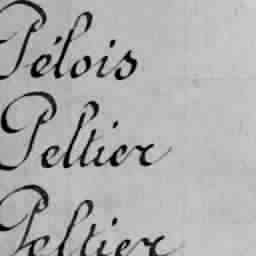 Pélois
Peltier
Peltier